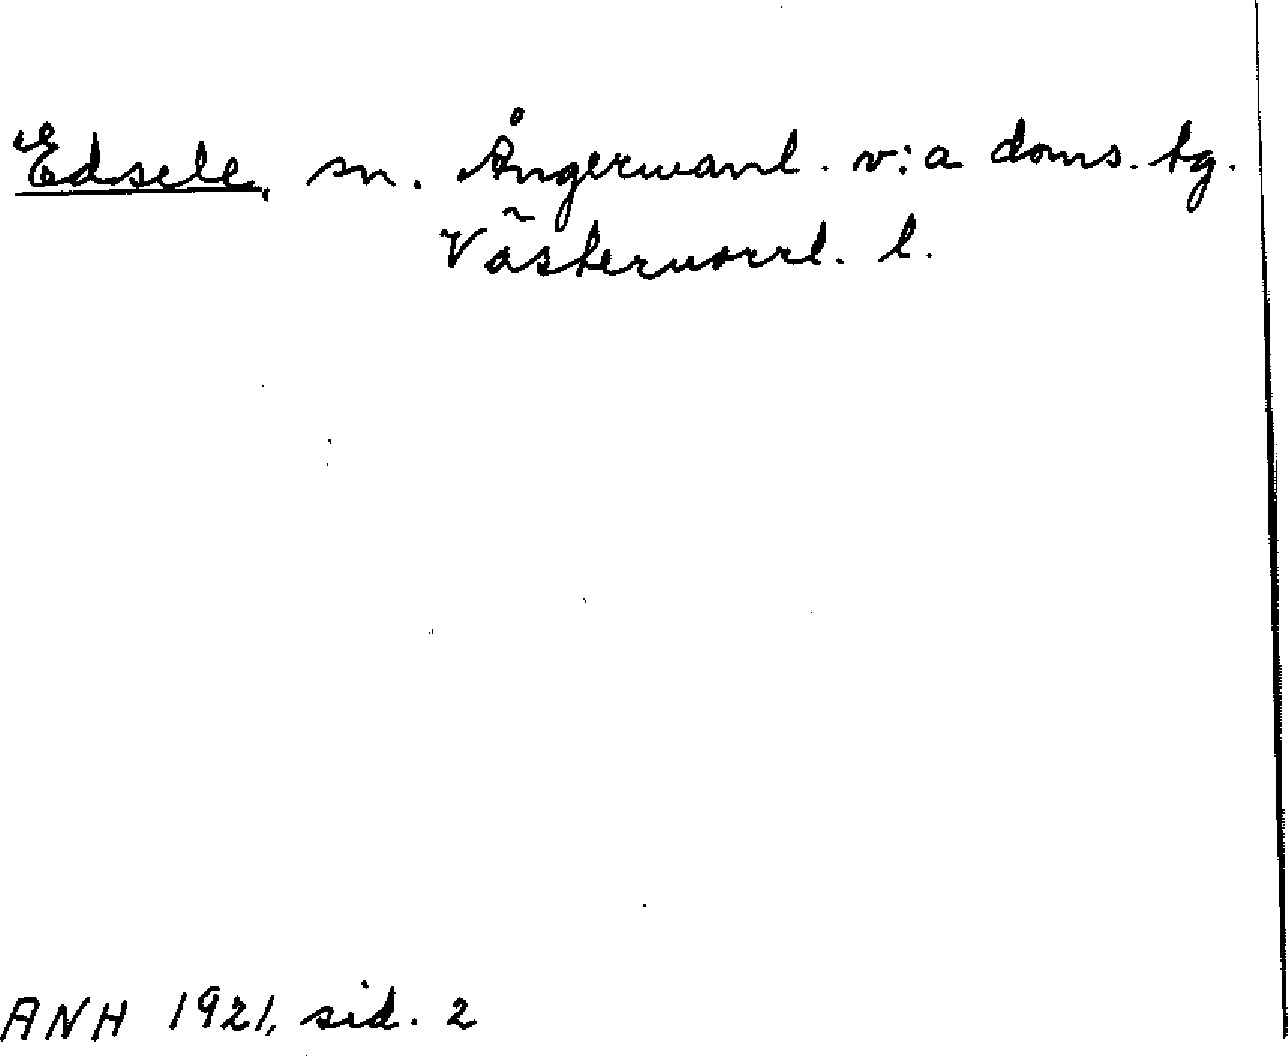 Edsele, sn. Ångermanl. v:a doms. tg.
Västernorrl. l.
ANH 1921, sid. 2